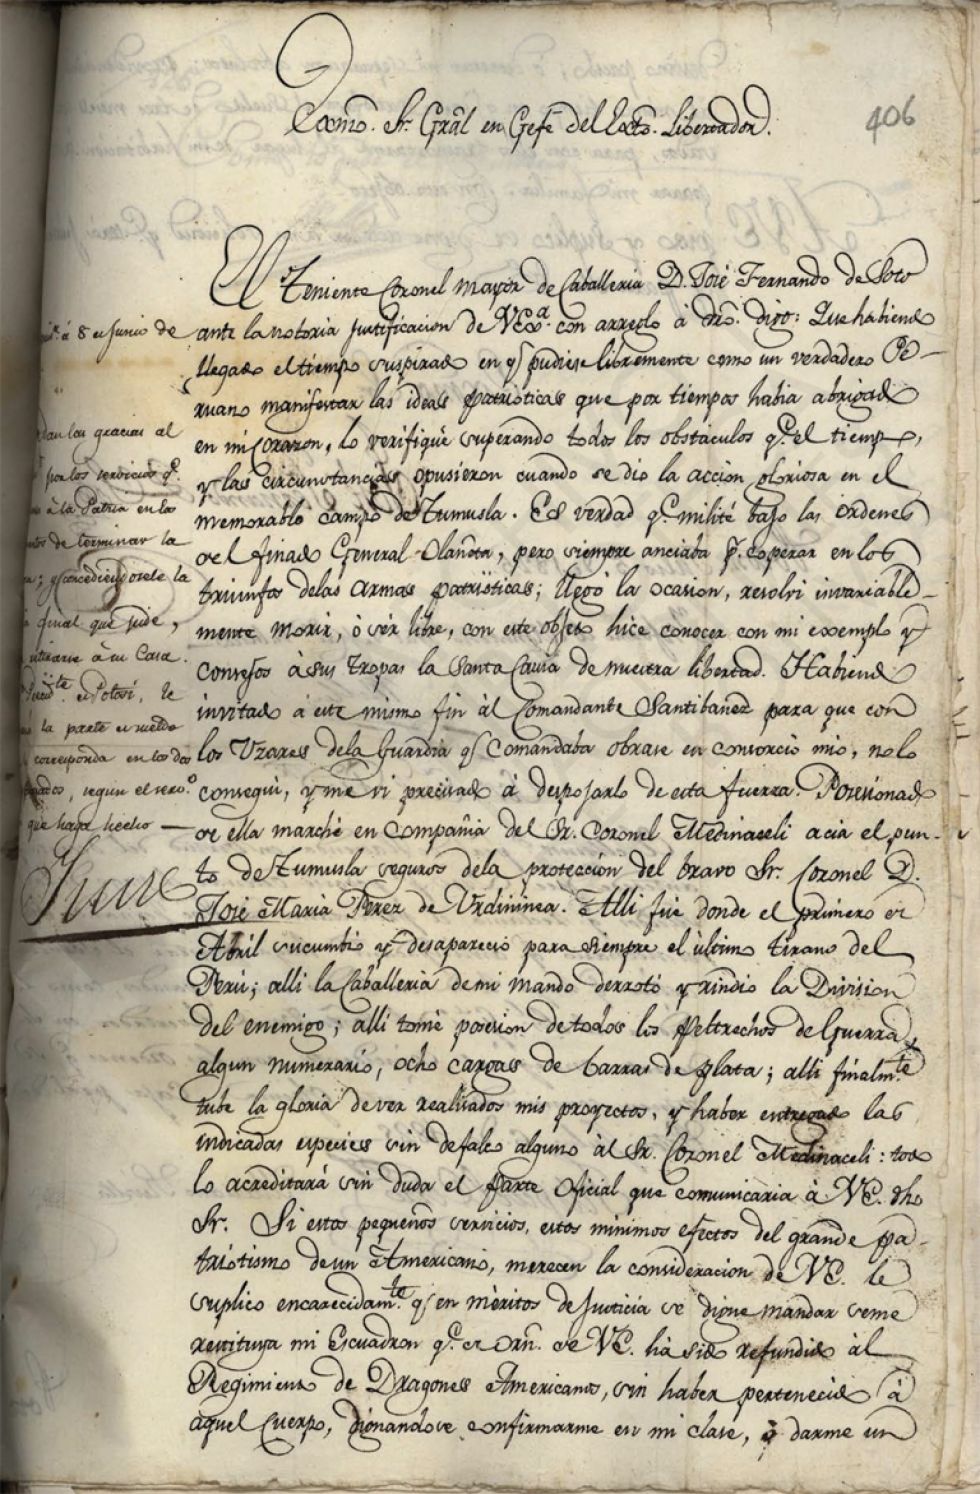 406
Exmo. Sr. Grāl en Gefe del Excto. Libertador.
El Teniente Coronel Mayor de Caballeria D. José Fernando de Soto
ante la notoria justificacion de VExa. con arreglo á dro. digo: Que habiendo
llegado el tiempo suspirado en q pudiese libremente como un verdadero Pe-
ruano manifestar las ideas patrioticas que por tiempos habia abrigado
en mi corazon, lo verifiqué superando todos los obstaculos q.e el tiempo,
y las circunstancias opusieron cuando se dio la accion gloriosa en el
memorable campo de Tumusla. Es verdad q.e milité bajo las ordenes
del finado General Olañeta, pero siempre anciaba p.r coperar en los
triunfos delas armas patrioticas; llegó la ocasion, resolvi invariable-
mente morir, ó ser libre, con este objeto hice conocer con mi exemplo y
consejos à sus tropas la Santa Causa de nuestra libertad. Habiendo
invitado á este mismo fin ál Comandante Santibañez para que con
los Uzares dela Guardia q comandaba obrase en consorcio mio, no lo
consegui, y me vi precisado á despojarlo de esta fuerza. Posesionado
de ella marché en compañia del Sr. Coronel Medinaceli acia el pun-
to de Tumusla seguros dela proteccion del bravo Sr. Coronel D.
José Maria Perez de Urdininea. Alli fue donde el primero de
Abril sucumbió y desapareció para siempre el ùltimo tirano del
Perú; alli la Caballeria de mi mando derrotó y rindio la Division
del enemigo; alli tomé posesion de todos los peltrechos de Guerra,
algun numerario, ocho cargas de barras de plata; alli finalm.te
tube la gloria de ver realisados mis proyectos, y haber entregado las
indicadas especies sin defalco alguno ál Sr. Coronel Medinaceli: todo
lo acreditará sin duda el parte oficial que comunicaria á VE. dho
Sr. Si estos pequeños servicios, estos minimos efectos del grande pa-
triotismo de un Americano, merecen la consideracion de VE. le
suplico encarecidam.te q en mèritos de Justicia se digne mandar seme
restituya mi Escuadron q.e de Orn. de VE. há sido refundido ál
Regimiento de Dragones Americanos, sin haber pertenecido á
aquel Cuerpo, dignandose confirmarme en mi clase, ò darme un
á 8 de Junio de
dan las gracias al
por los servicios q.e
á la Patria en los
de terminar la
; y concediendosele la
final que pide,
retirarse á su Casa.
en Potosí, le
la parte de sueldo
corresponda en los dos
, segun el serv.o
que haya hecho —
Sucre